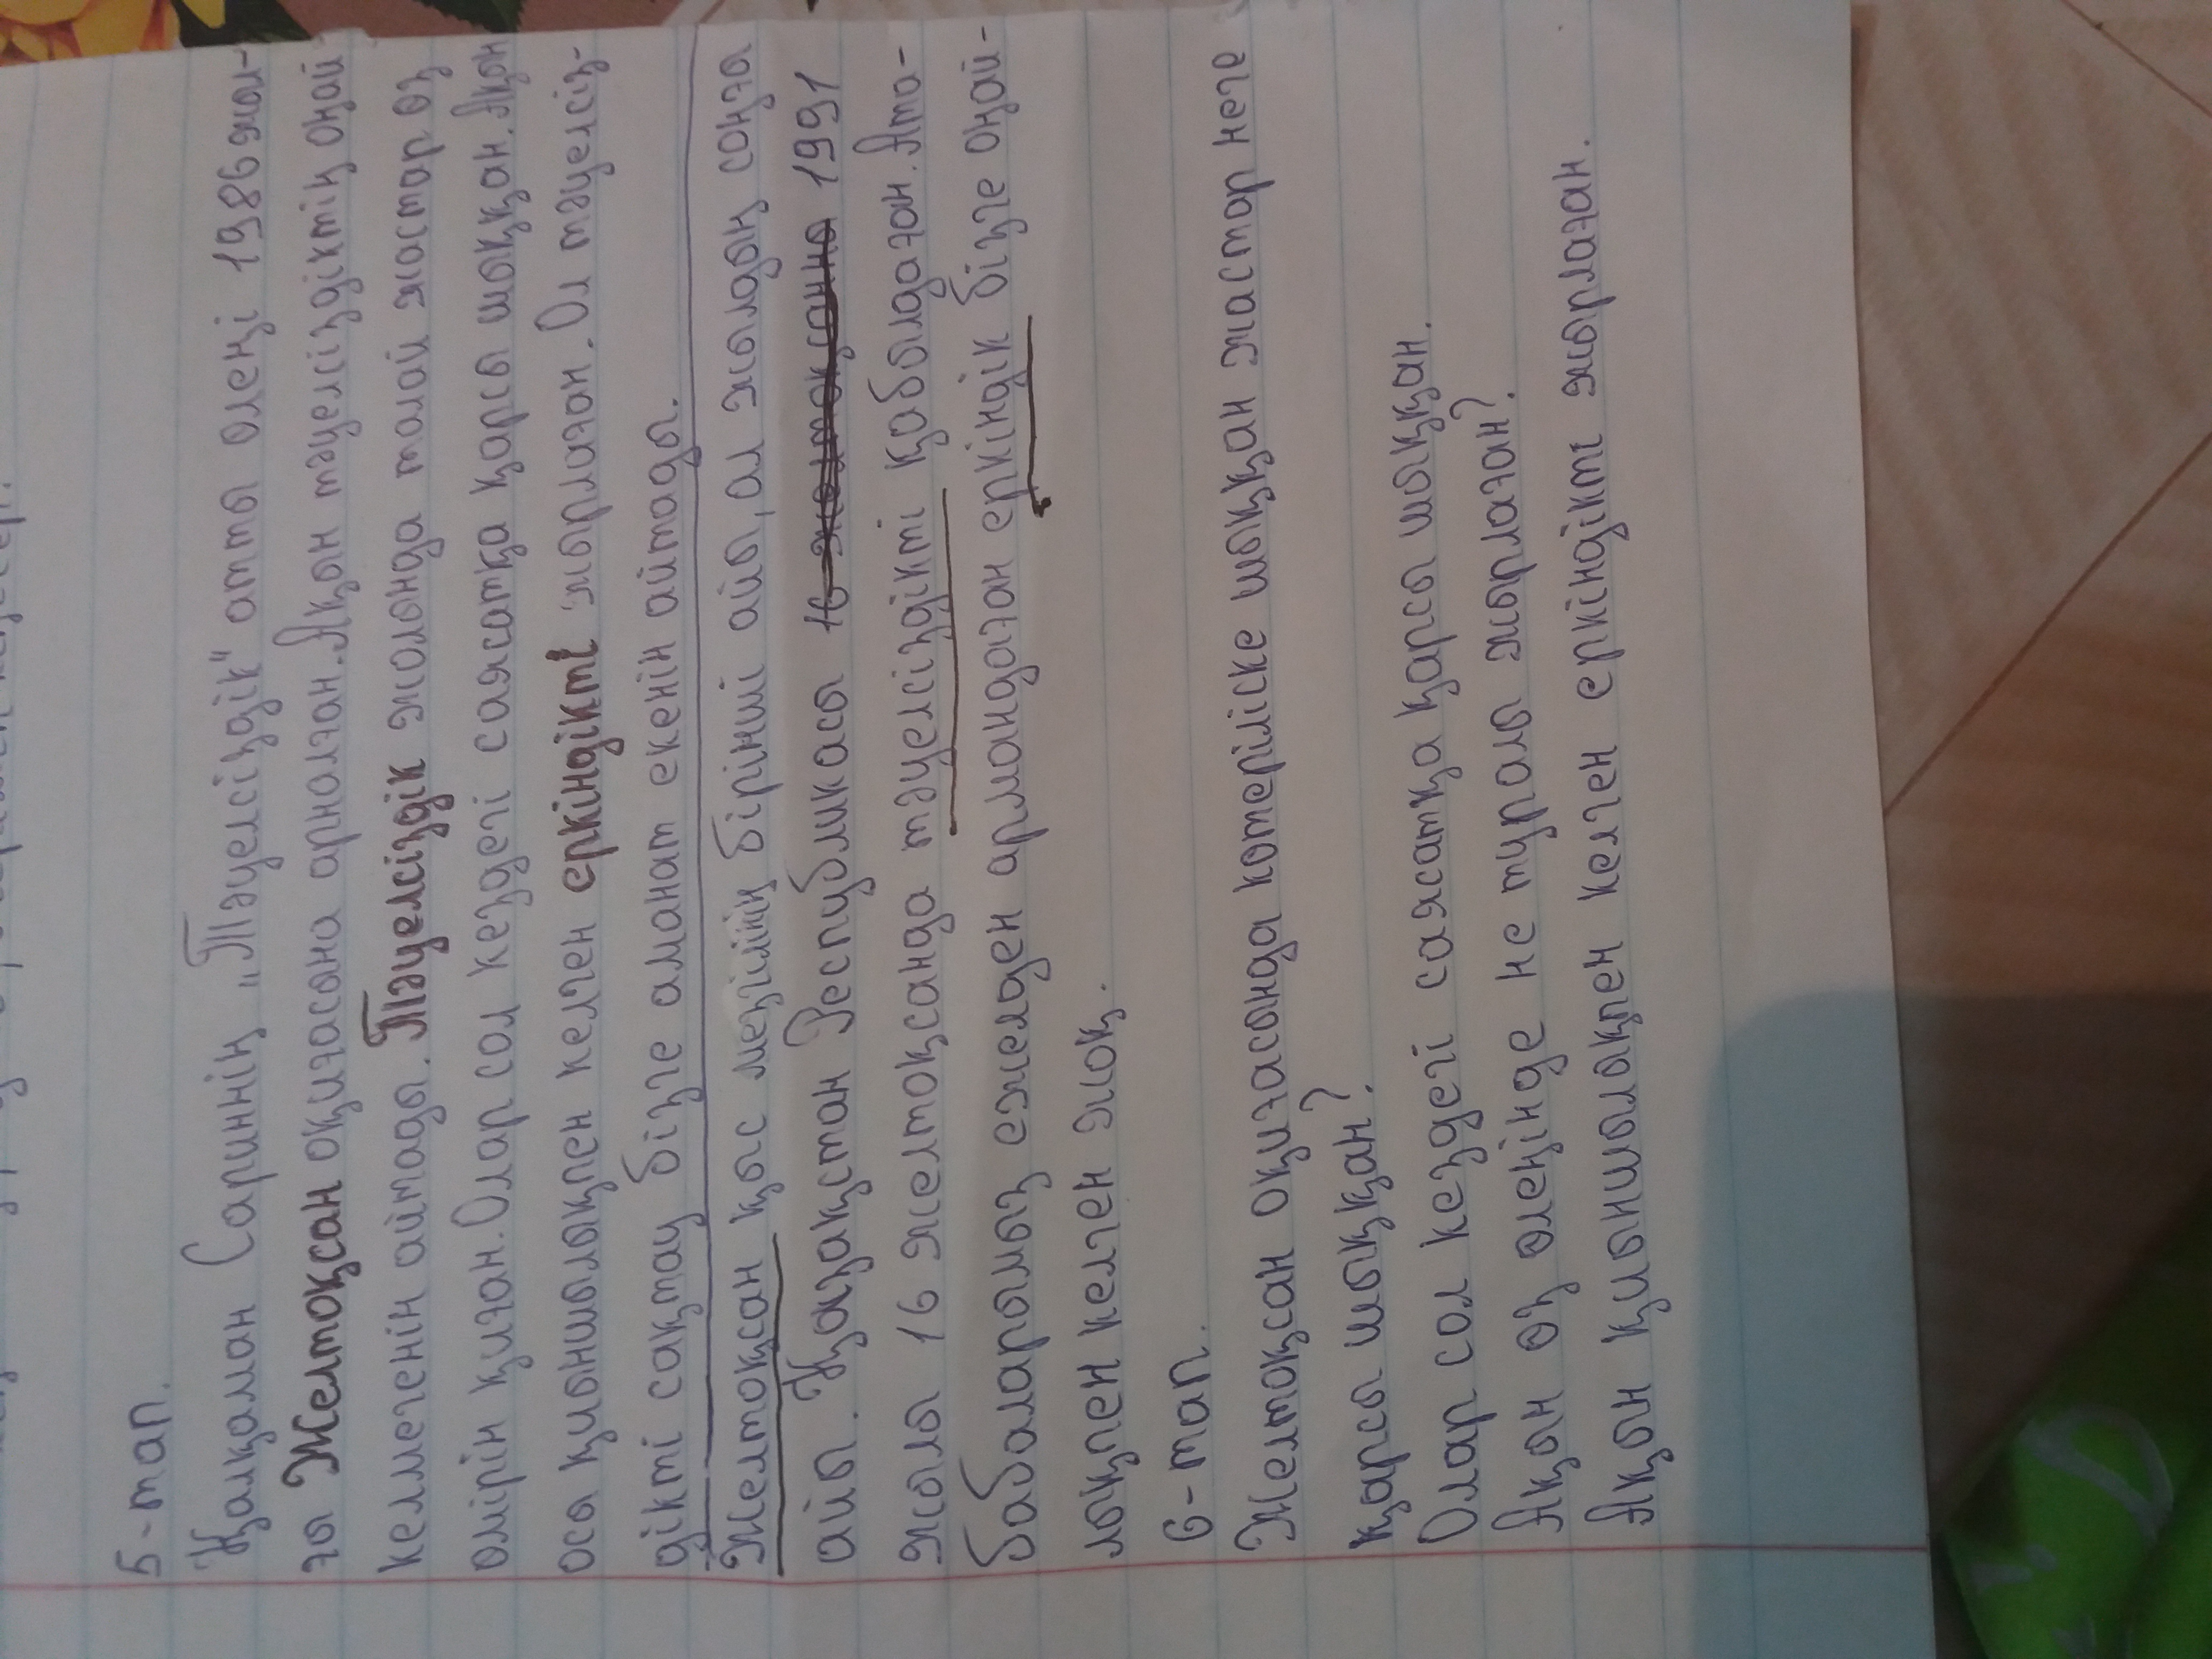 5-тап.
Қалқаман Сариннің "Тәуелсіздік" атты өлеңі 1986 жыл-
ғы Желтоқсан оқиғасына арналған. Ақын тәуелсіздіктің оңай
келмегенін айтады. Тәуелсіздік жолында талай жастар өз
өмірін қиған. Олар сол кездегі саясатқа қарсы шыққан. Ақын
осы қиыншылықпен келген еркіндікті жырлаған. Ол тәуелсіз-
дікті сақтау бізге аманат екенін айтады.
Желтоқсан қыс мезгілінің бірінші айы, ал жылдың соңғы
айы. Қазақстан Республикасы 16 желтоқсанда 1991
жылы 16 желтоқсанда тәуелсіздікті қабылдаған. Ата-
бабаларымыз ежелден армандаған еркіндік бізге оңай-
лықпен келген жоқ.
6-тап.
Желтоқсан оқиғасында көтеріліске шыққан жастар неге
қарсы шыққан?
Олар сол кездегі саясатқа қарсы шыққан.
Ақын өз өлеңінде не туралы жырлаған?
Ақын қиыншылықпен келген еркіндікті жырлаған.